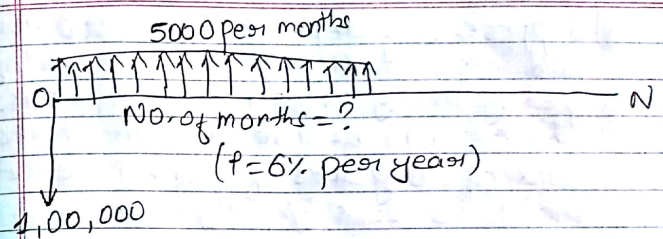 5000 per months
0 N
No. of months = ?
(i = 6% per year)
1,00,000